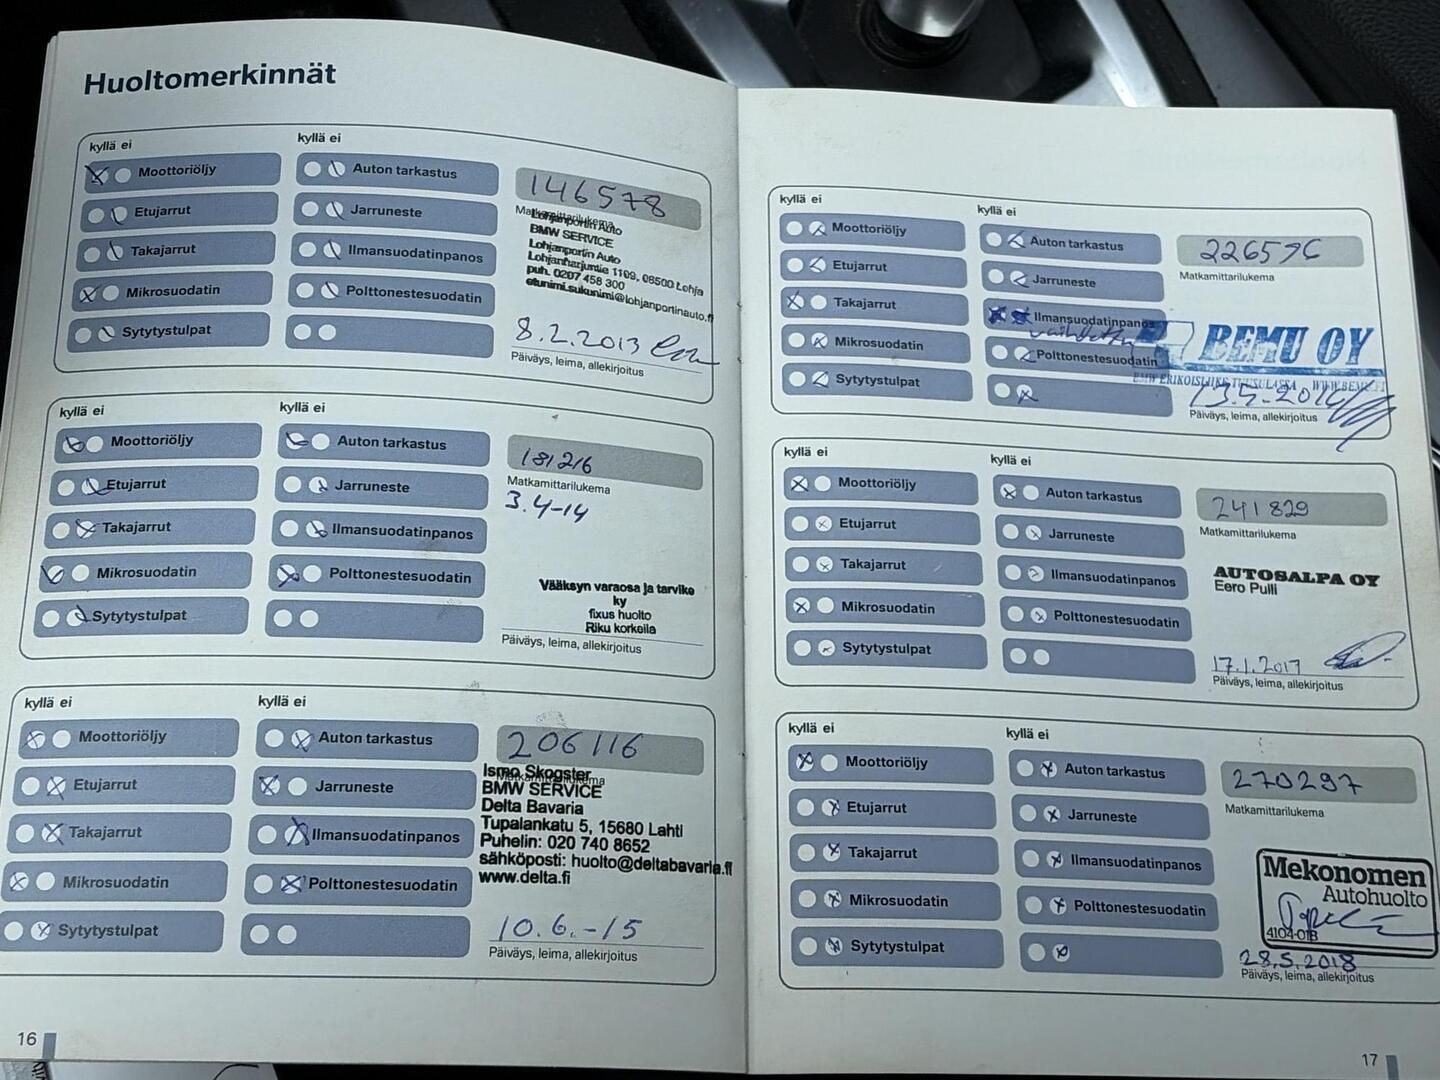 Huoltomerkinnät
kyllä ei
kyllä ei
Moottoriöljy
Auton tarkastus
Etujarrut
Jarruneste
Takajarrut
Ilmansuodatinpanos
Mikrosuodatin
Polttonestesuodatin
Sytytystulpat
146578
Matkamittarilukema
Lohjanportin Auto
BMW SERVICE
Lohjanportin Auto
Lohjanharjuntie 1109, 08500 Lohja
puh. 0207 458 300
etunimi.sukunimi@lohjanportinauto.fi
8.2.2013
Päiväys, leima, allekirjoitus
kyllä ei
kyllä ei
Moottoriöljy
Auton tarkastus
Etujarrut
Jarruneste
Takajarrut
Ilmansuodatinpanos
Mikrosuodatin
Polttonestesuodatin
Sytytystulpat
181216
Matkamittarilukema
3.4-14
Vääksyn varaosa ja tarvike
ky
fixus huolto
Riku korkeila
Päiväys, leima, allekirjoitus
kyllä ei
kyllä ei
Moottoriöljy
Auton tarkastus
Etujarrut
Jarruneste
Takajarrut
Ilmansuodatinpanos
Mikrosuodatin
Polttonestesuodatin
Sytytystulpat
206116
Matkamittarilukema
Ismo Skogster
BMW SERVICE
Delta Bavaria
Tupalankatu 5, 15680 Lahti
Puhelin: 020 740 8652
sähköposti: huolto@deltabavaria.fi
www.delta.fi
10.6.-15
Päiväys, leima, allekirjoitus
16
kyllä ei
kyllä ei
Moottoriöljy
Auton tarkastus
Etujarrut
Jarruneste
Takajarrut
Ilmansuodatinpanos
vaihdettu
Mikrosuodatin
Polttonestesuodatin
Sytytystulpat
226596
Matkamittarilukema
BEMU OY
BMW ERIKOISLIIKE TUUSULASSA WWW.BEMU.FI
13.5.2016
Päiväys, leima, allekirjoitus
kyllä ei
kyllä ei
Moottoriöljy
Auton tarkastus
Etujarrut
Jarruneste
Takajarrut
Ilmansuodatinpanos
Mikrosuodatin
Polttonestesuodatin
Sytytystulpat
241829
Matkamittarilukema
AUTOSALPA OY
Eero Pulli
17.1.2017
Päiväys, leima, allekirjoitus
kyllä ei
kyllä ei
Moottoriöljy
Auton tarkastus
Etujarrut
Jarruneste
Takajarrut
Ilmansuodatinpanos
Mikrosuodatin
Polttonestesuodatin
Sytytystulpat
270297
Matkamittarilukema
Mekonomen
Autohuolto
4104-01B
28.5.2018
Päiväys, leima, allekirjoitus
17